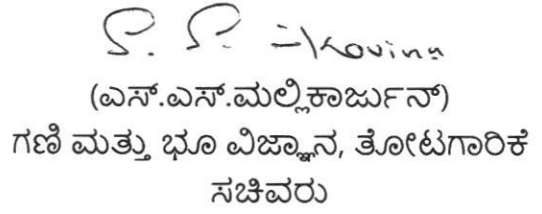 (ಎಸ್.ಎಸ್.ಮಲ್ಲಿಕಾರ್ಜುನ್)
ಗಣಿ ಮತ್ತು ಭೂ ವಿಜ್ಞಾನ, ತೋಟಗಾರಿಕೆ
ಸಚಿವರು